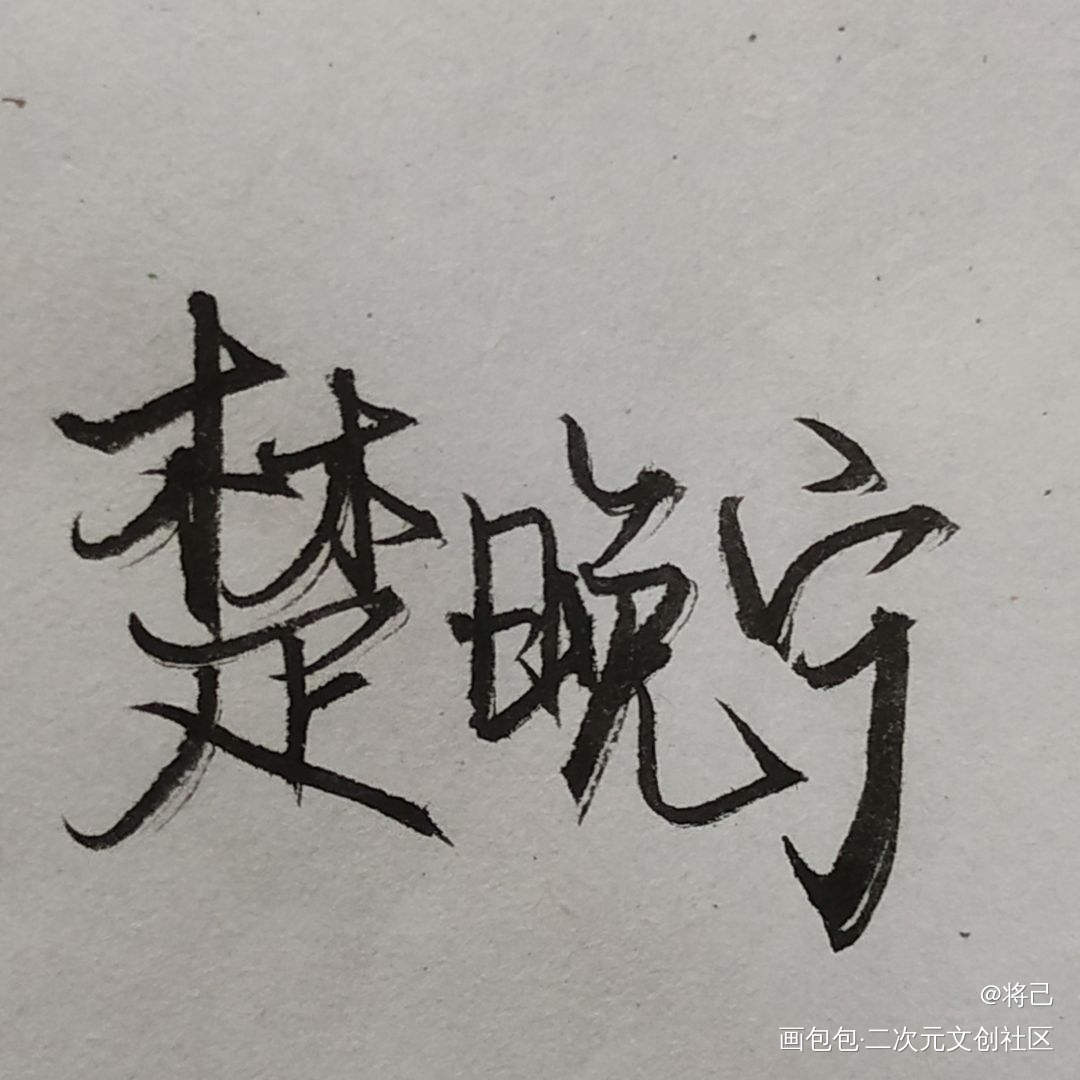 楚晚宁
@将己
画包包·二次元文创社区